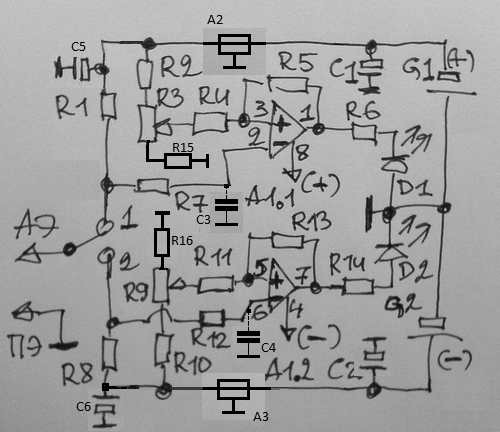 A2
C5
R2
R5
C1
G1
(+)
R1
R3
R4
3
1
R6
2
8
R15
(+)
R7
A1.1
D1
C3
АЭ
1
R13
R16
2
R11
5
7
R14
D2
R9
6
4
G2
ПЭ
R12
(-)
C4
R8
R10
A1.2
C2
(-)
C6
A3